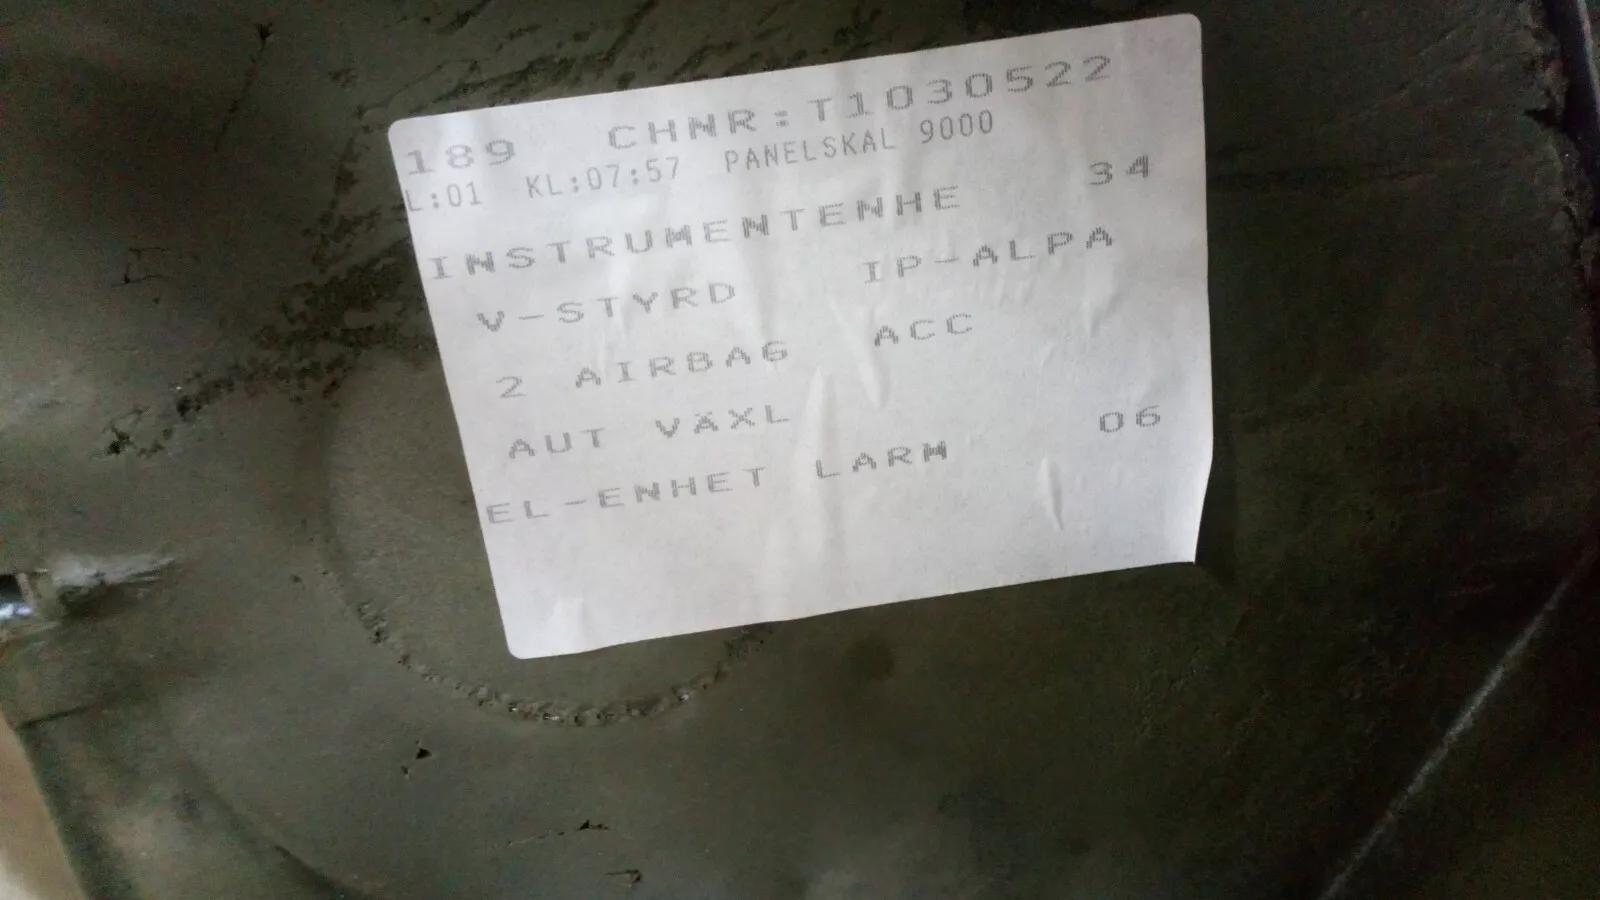 189 CHNR:T1030522
L:01 KL:07:57 PANELSKAL 9000
INSTRUMENTENHE 34
V-STYRD IP-ALPA
2 AIRBAG ACC
AUT VÄXL
EL-ENHET LARM 06